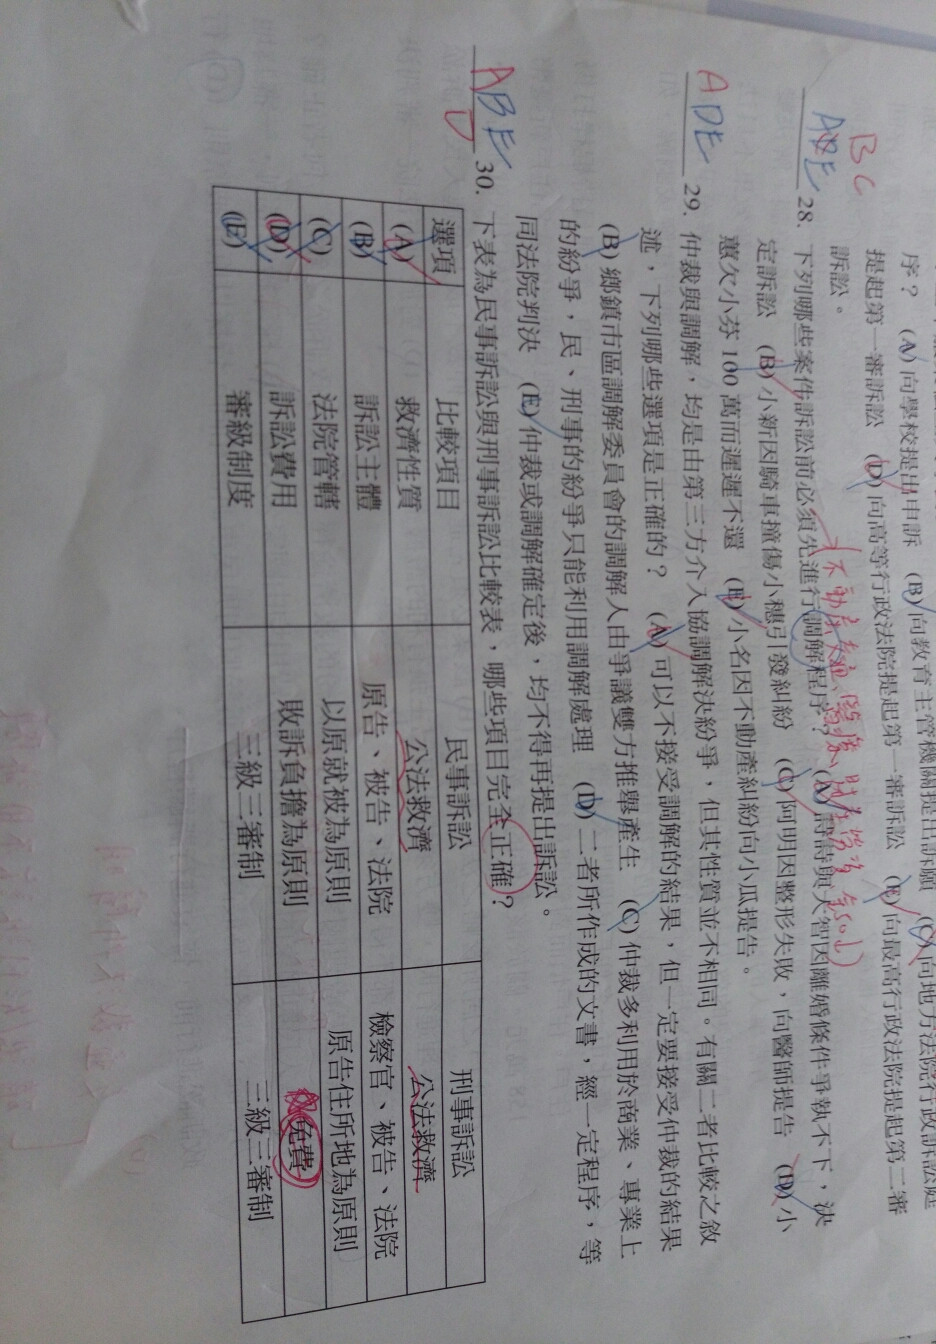 序？ (A)向學校提出申訴 (B)向教育主管機關提出訴願 (C)向地方法院行政訴訟庭
提起第一審訴訟 (D)向高等行政法院提起第一審訴訟 (E)向最高行政法院提起第二審
訴訟。
BC
ABE 28. 下列哪些案件訴訟前必須先進行調解程序？ (A)詩詩與大智因離婚條件爭執不下，決
定訴訟 (B)小新因騎車撞傷小穗引發糾紛 (C)阿明因整形失敗，向醫師提告 (D)小
蕙欠小芬 100 萬而遲遲不還 (E)小名因不動產糾紛向小瓜提告。
ADE 29. 仲裁與調解，均是由第三方介入協調解決紛爭，但其性質並不相同。有關二者比較之敘
述，下列哪些選項是正確的？ (A)可以不接受調解的結果，但一定要接受仲裁的結果
(B)鄉鎮市區調解委員會的調解人由爭議雙方推舉產生 (C)仲裁多利用於商業、專業上
的紛爭，民、刑事的紛爭只能利用調解處理 (D)二者所作成的文書，經一定程序，等
同法院判決 (E)仲裁或調解確定後，均不得再提出訴訟。
ABE 30. 下表為民事訴訟與刑事訴訟比較表，哪些項目完全正確？
D
選項 比較項目 民事訴訟 刑事訴訟
(A) 救濟性質 公法救濟 公法救濟
(B) 訴訟主體 原告、被告、法院 檢察官、被告、法院
(C) 法院管轄 以原就被為原則 原告住所地為原則
(D) 訴訟費用 敗訴負擔為原則 免費
(E) 審級制度 三級三審制 三級三審制